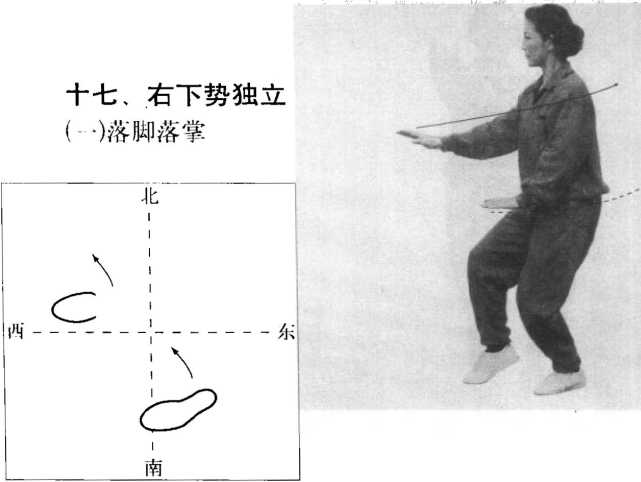 十七、右下势独立
(一)落脚落掌
北
西
东
南